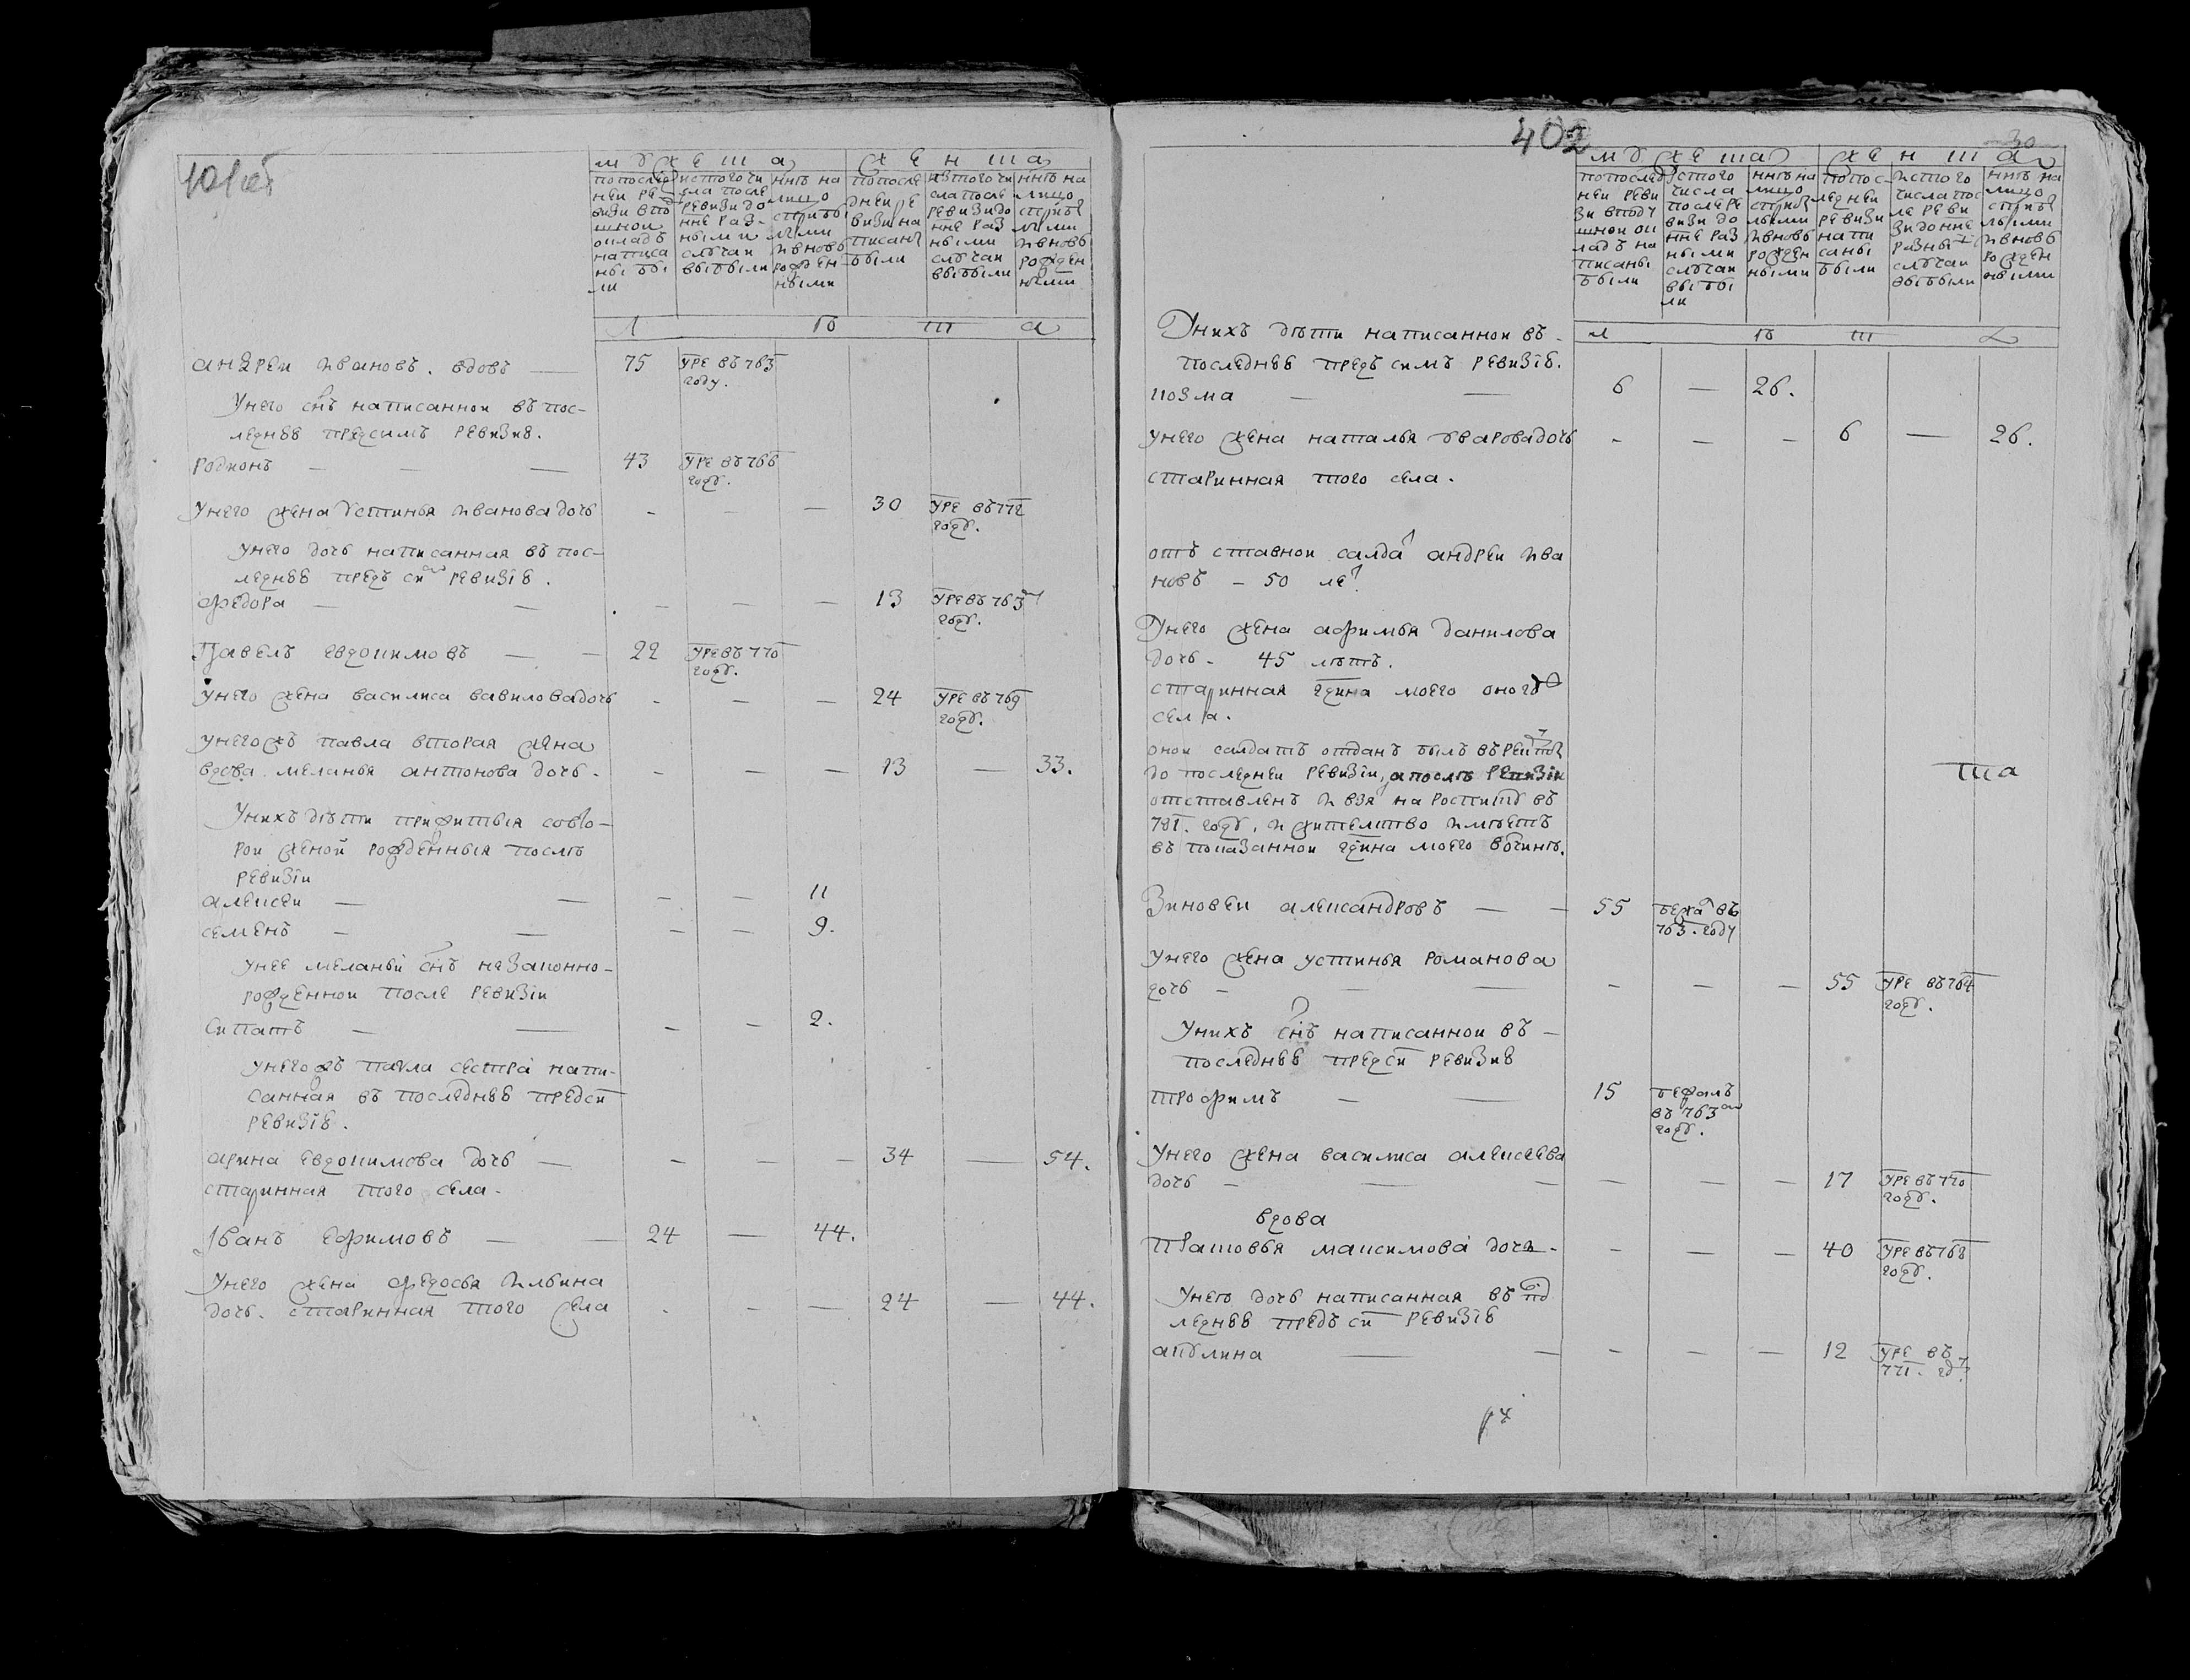 мужеска
женска
попослед
ней ре
визи впод
ушнои
окладъ
написа
ны бы
ли
истогочи
сла после
ревизи до
нне раз-
ными
случаи
выбыли
ннѣ на
лицо
сприбы
лыми
ивновь
рожден
ными
попосле
дней ре
визи на
писаны
были
изтогочи
сла после
ревизи до
нне раз
ными
случаи
выбыли
ннѣ на
лицо
сприбы
лыми
ивновь
рожден
ными
л ѣ т а
андреи ивановъ. вдовъ — 75 уре въ 763
году.
Унего снъ написаннои въ пос-
леднеѣ предсимъ ревизиѣ.
родионъ — — — 43 уре въ 766
году.
унего жена устинья ивановадочь - - — 30 уре въ 772
году.
унего дочь написанная въ пос-
леднеѣ предъ сим ревизiѣ.
федора — — - — — 13 уре въ 763
году.
Павелъ евдокимовъ — — 22 уре въ 770
году.
унего жена василиса вавиловадочь - — — 24 уре въ 769
году.
унегожъ павла вторая жена
вдова меланья антонова дочь. - — — 13 — 33.
Унихъ дѣти прижитыя совто-
рои женой рожденныя послѣ
ревизiи
алексеи — — - — 11
семенъ — — - — 9.
унее меланьи снъ незаконно-
рожденнои после ревизiи
Сипатъ — — - - 2.
унегожъ павла сестра напи-
санная въ последнеѣ предси
ревизiѣ.
арина евдокимова дочь — - — — 34 — 54.
старинная того села.
Iванъ ефимовъ — — 24 — 44.
Унего жена федосья ильина
дочь. старинная того села - - — 24 — 44.
402
30
мужеска
женска
попослед
ней реви
зи вподу
шнои ок
ладъ на
писаны
были
истого
числа
послере
визи до
нне раз
ными
случаи
выбы
ли
ннѣ на
лицо
сприбы
лыми
ивновь
рожден
ными
попос-
ледней
ревизи
напи
саны
были
истого
числа пос
ле реви
зи до нне
разны
случаи
выбыли
ннѣ на
лицо
сприбы
лыми
ивновь
рожден
ными
л ѣ т а
Унихъ дѣти написаннои въ -
последнеѣ предъ симъ ревизiѣ.
козма — — 6 — 26.
унего жена наталья уваровадочь - — - 6 — 26.
старинная того села.
отъ ставнои салда андреи ива
новъ — 50 ле
Унего жена афимья данилова
дочь. 45 лѣтъ.
старинная гдина моего оного
села.
онои салдатъ отданъ былъ въ рекруты
до последнеи ревизiи, а послѣ ревизiи
отставленъ и взя на роспиту въ
781. году, и жителство имѣетъ
въ показаннои гдина моего вочинѣ.
та
Зиновеи александровъ — — 55 бежа въ
763. году
унего жена устинья романова
дочь — — — - - — 55 уре въ 764
году.
Унихъ снъ написаннои въ —
последнеѣ предси ревизиѣ
трофимъ — — 15 бежалъ
въ 763
году.
унего жена василиса алексеева
дочь — — — — — — 17 уре въ 770
году.
вдова
Праковья максимова дочь - - — — 40 уре въ 768
году.
Унего дочь написанная въ по
леднеѣ предъ си ревизiѣ
акулина — — - — — 12 уре въ
771. гд